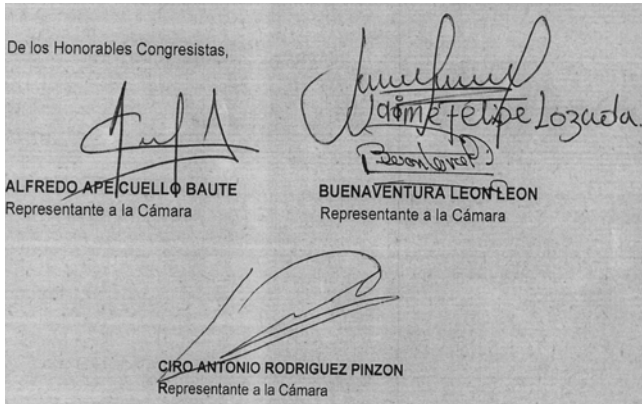 De los Honorables Congresistas,
Jaime Felipe Lozada.
ALFREDO APE CUELLO BAUTE
Representante a la Cámara
BUENAVENTURA LEON LEON
Representante a la Cámara
CIRO ANTONIO RODRIGUEZ PINZON
Representante a la Cámara